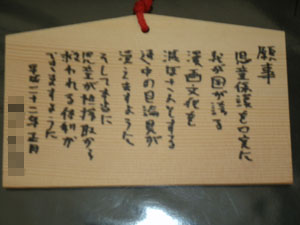 願事
児童保護を口実に
我が国が誇る
漫画文化を
滅ぼさんとする
連中の目論見が
潰えますように
そして本当に
児童が性搾取から
救われる体制が
できますように
平成二十二年正月